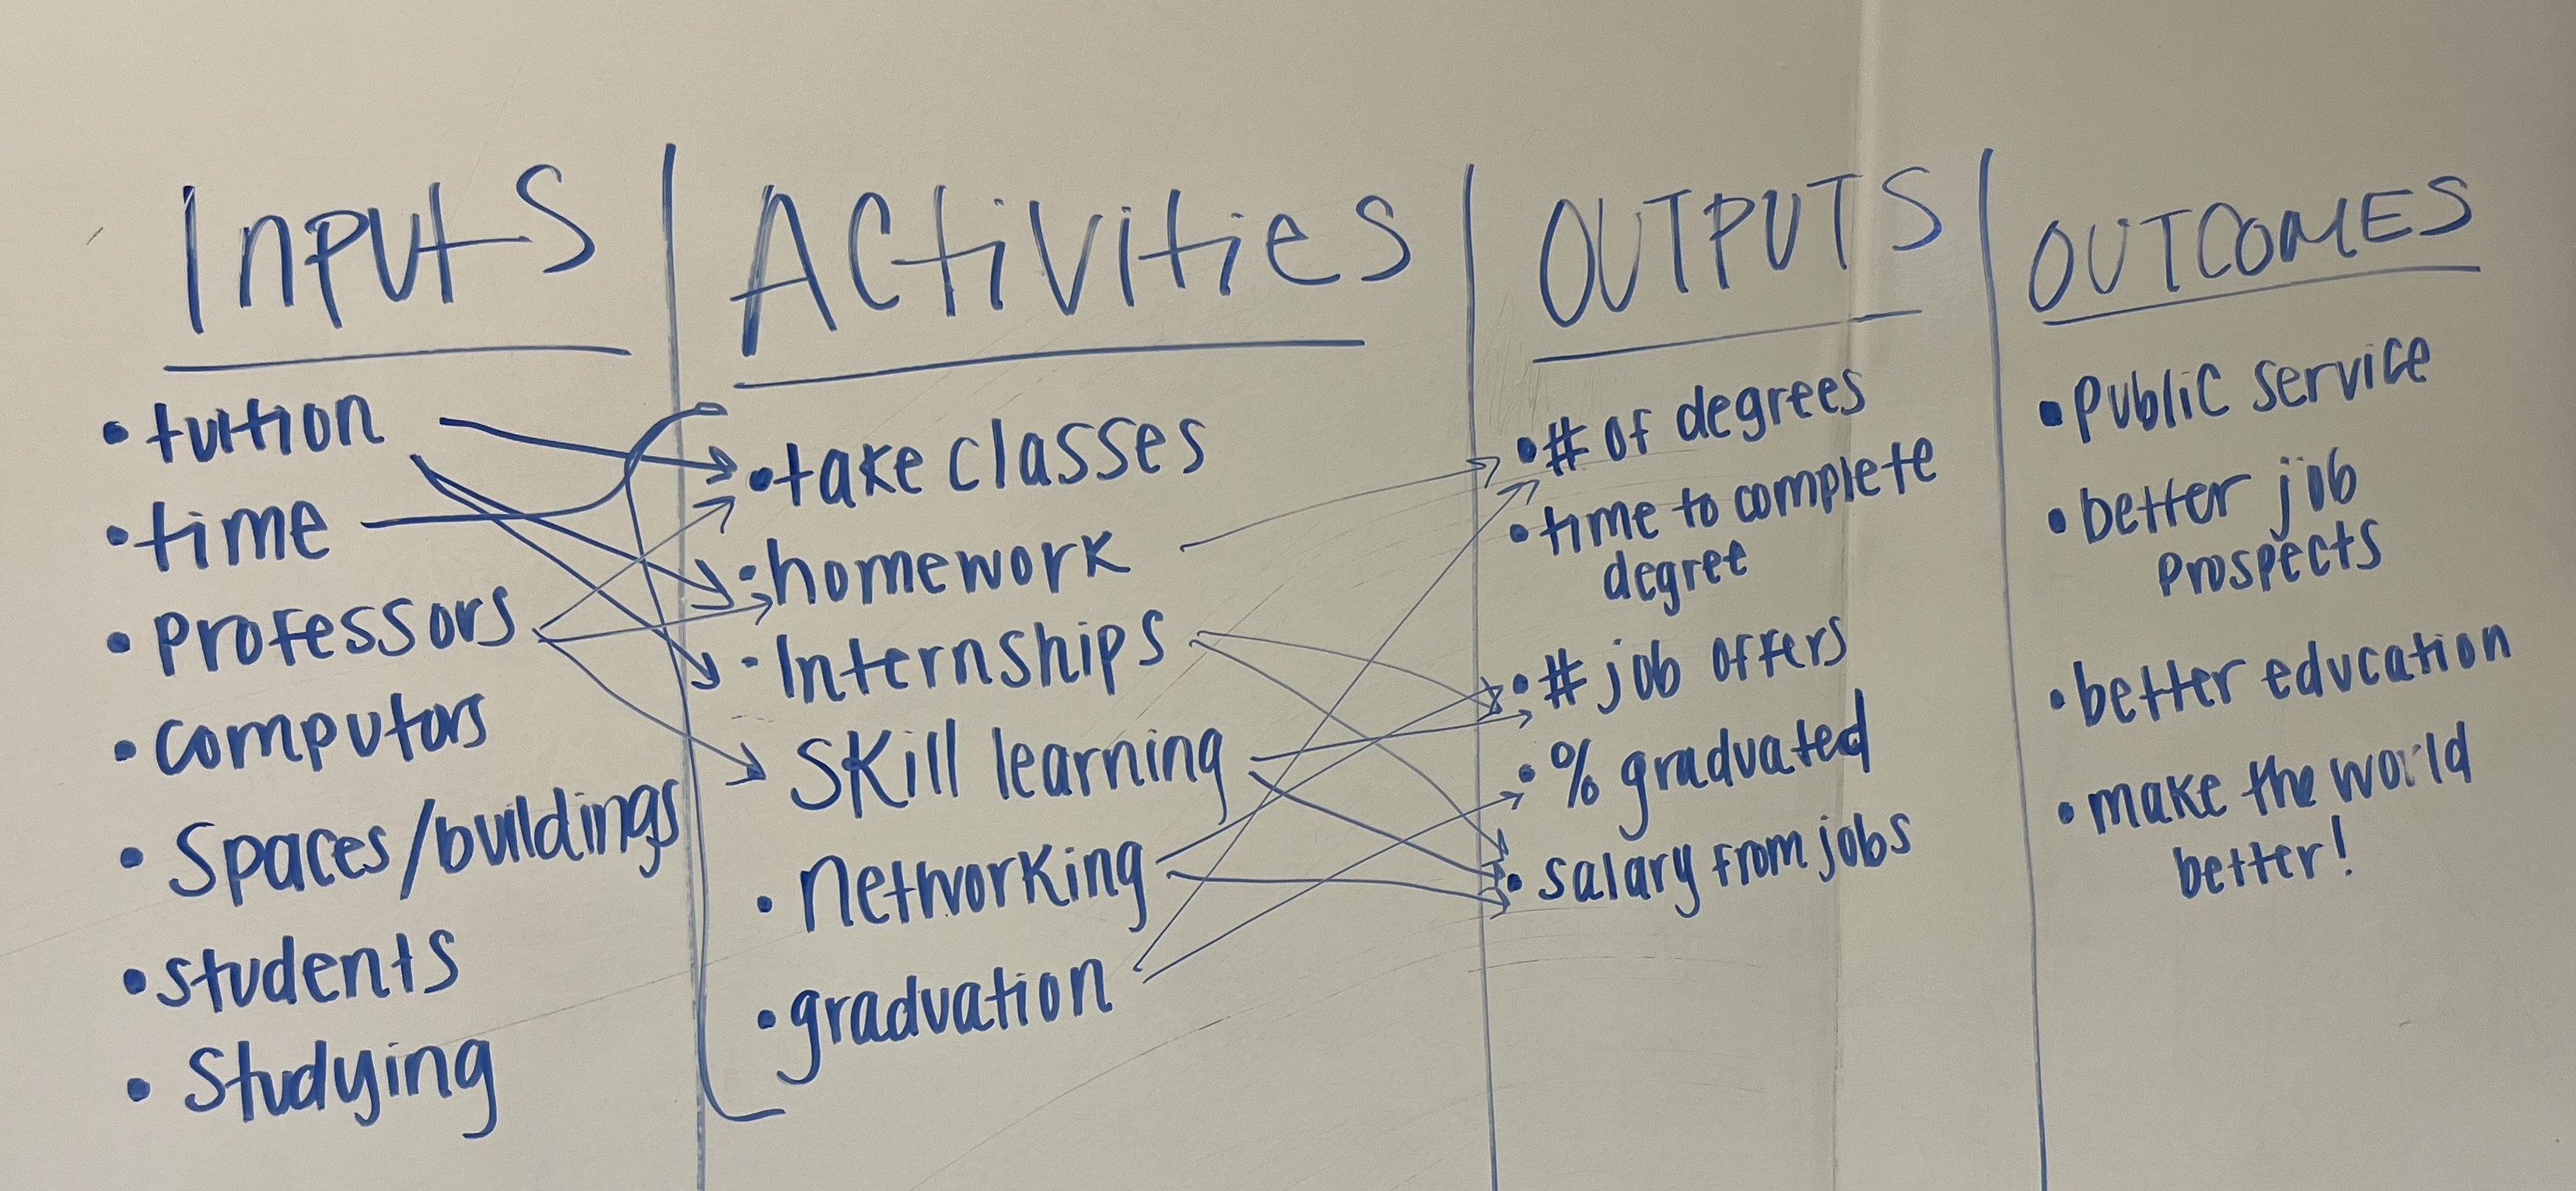 Inputs
• tuition
• time
• Professors
• computors
• Spaces/buildings
• students
• Studying
Activities
• take classes
• homework
• Internships
Skill learning
• Networking
• graduation
OUTPUTS
• # of degrees
• time to complete
degree
• # job offers
• % graduated
• salary from jobs
OUTCOMES
• Public service
• better job
Prospects
• better education
• make the world
better!